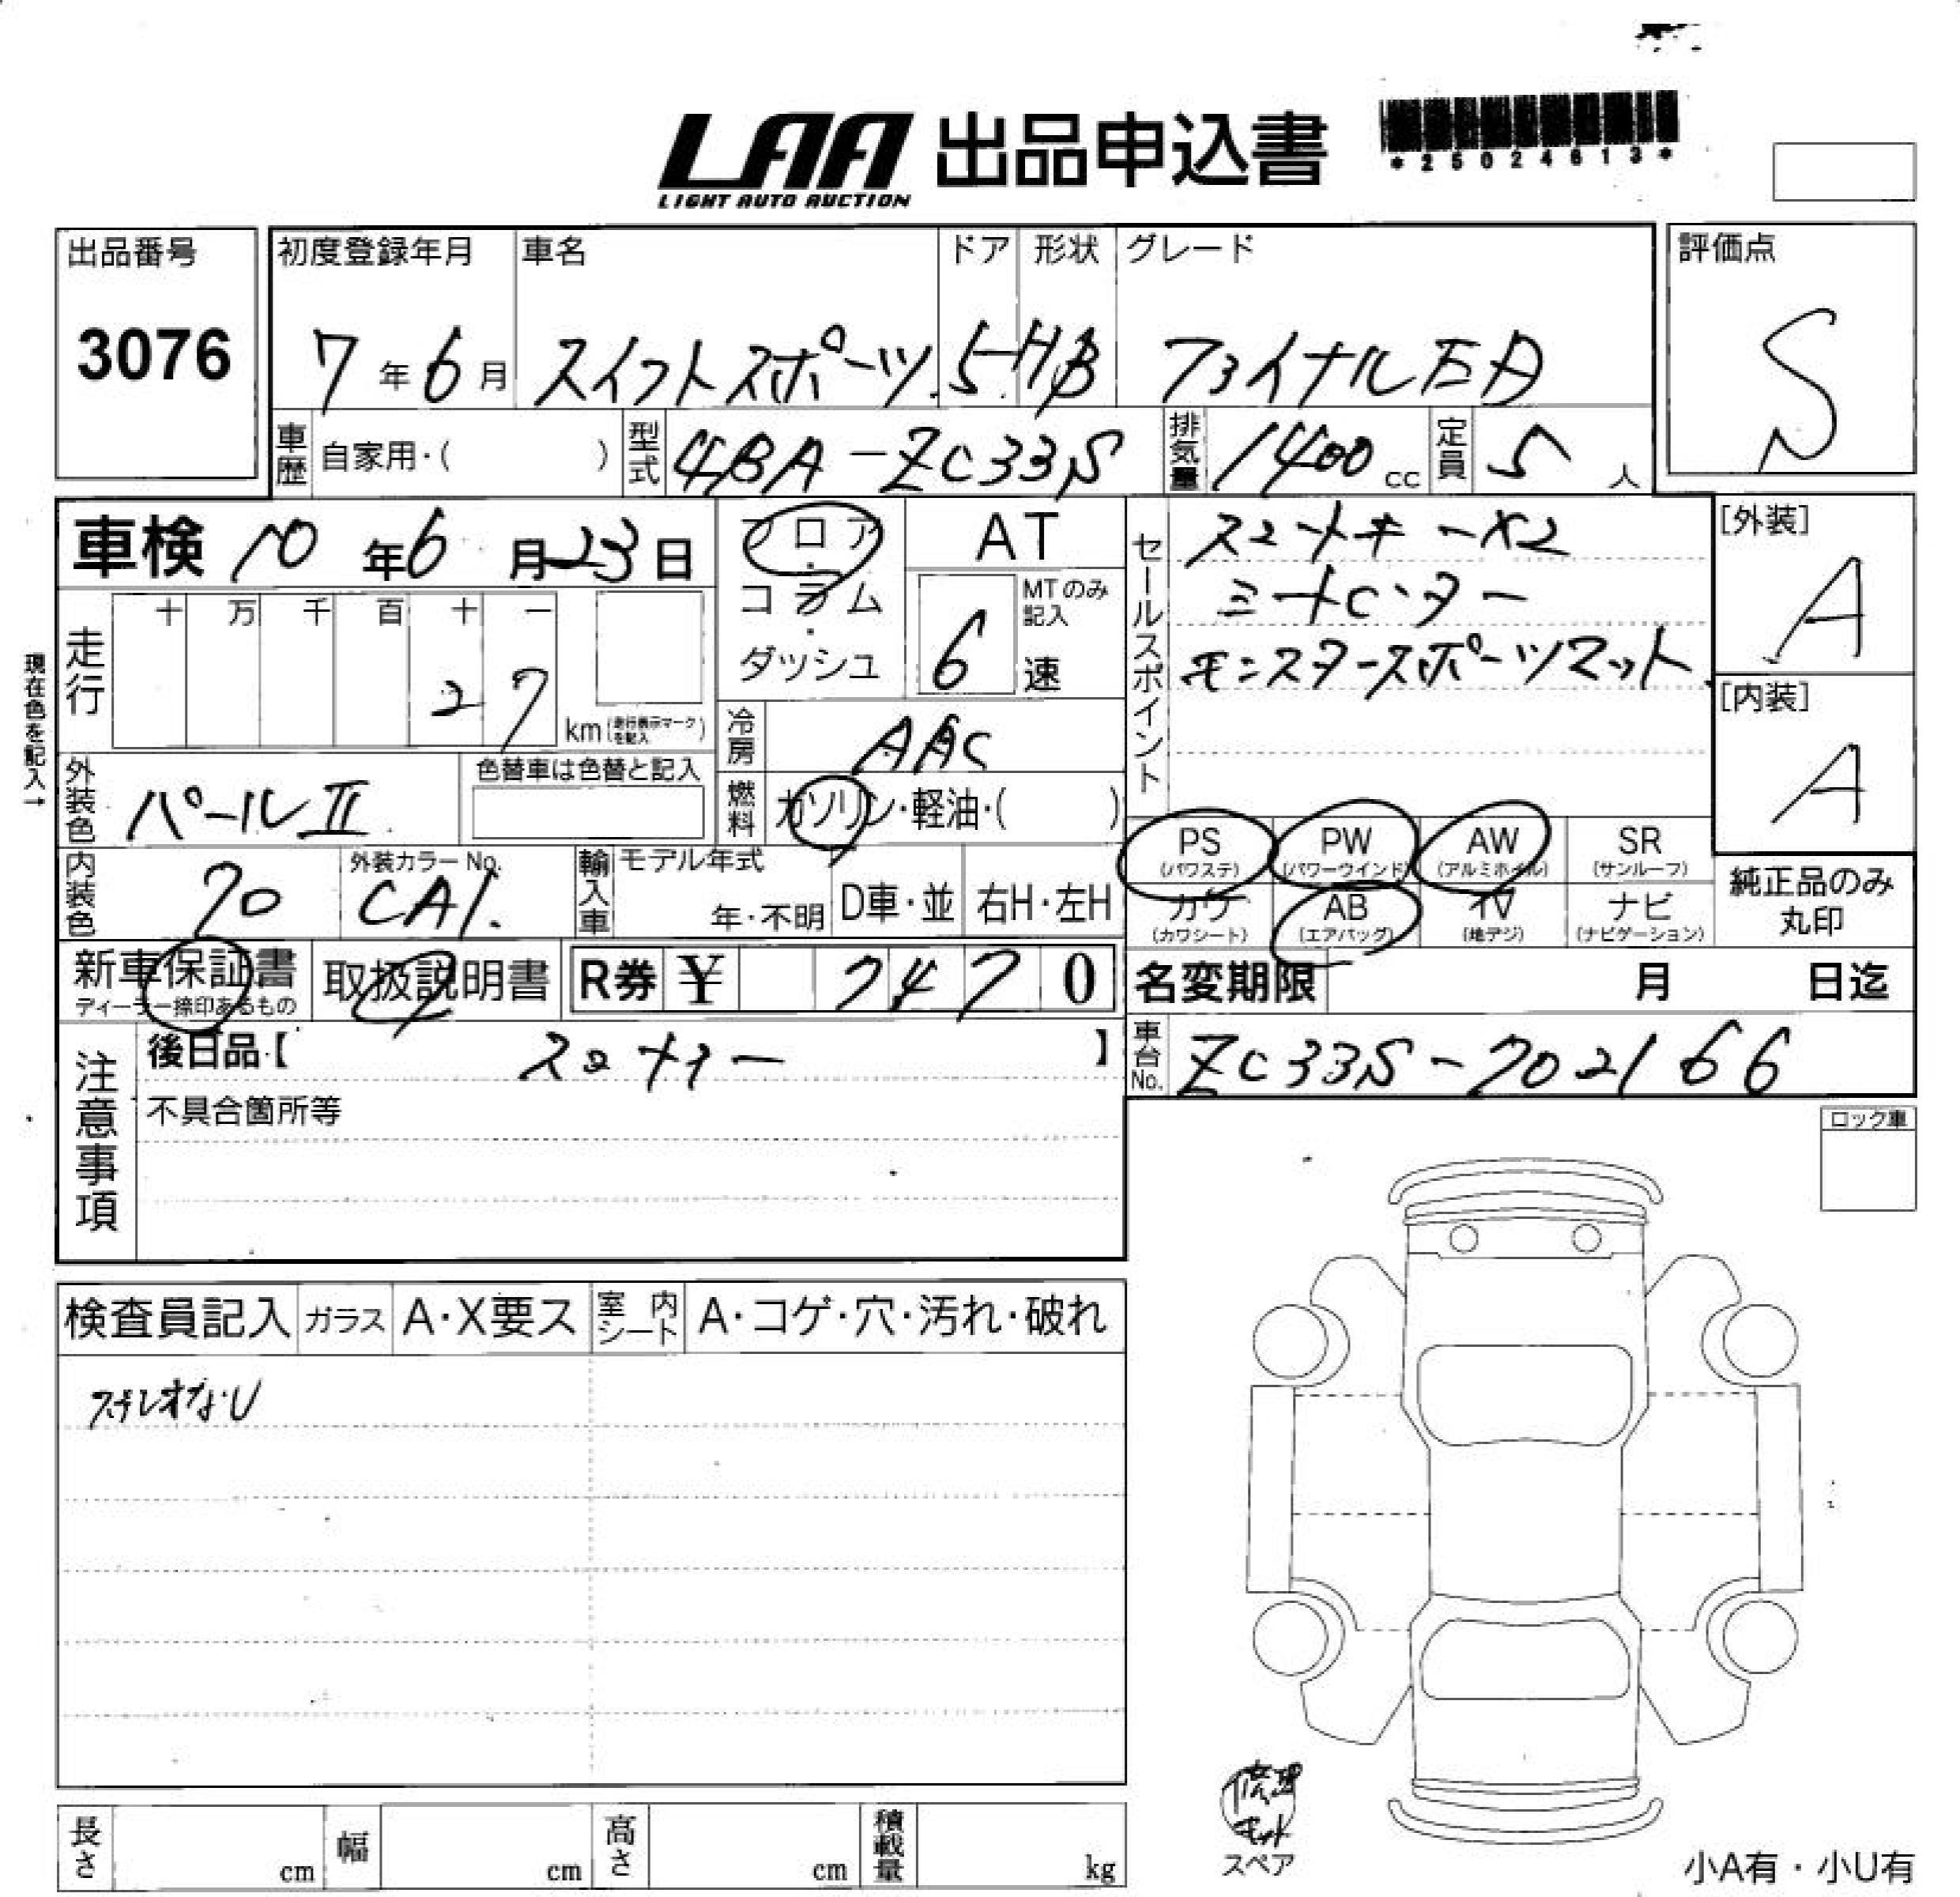 LAA 出品申込書
LIGHT AUTO AUCTION
*25024613*
出品番号
3076
初度登録年月 車名 ドア 形状 グレード
7年6月 スイフトスポーツ 5 HB ファイナルED
評価点
S
車歴 自家用・( ) 型式 4BA-ZC33S 排気量 1400cc 定員 5人
車検 10年6月23日
フロア・コラム・ダッシュ
AT
MTのみ記入
6速
セールスポイント
スマートキーX2
シートヒーター
モンスタースポーツマット
[外装]
A
[内装]
A
現在色を記入→
走行 十 万 千 百 十 一
27 km(走行表示マークを記入)
冷房 AAC
外装色 パールⅡ 色替車は色替と記入
燃料 ガソリン・軽油・( )
PS(パワステ) PW(パワーウインド) AW(アルミホイル) SR(サンルーフ)
カワ(カワシート) AB(エアバッグ) TV(地デジ) ナビ(ナビゲーション)
純正品のみ丸印
内装色 70 外装カラーNo. CA1. 輸入車 モデル年式 年・不明 D車・並 右H・左H
新車保証書 ディーラー捺印あるもの 取扱説明書 R券 ¥ 7470
名変期限 月 日迄
注意事項
後日品【 】
不具合箇所等
車台No. ZC33S-702166
ロック車
検査員記入 ガラス A・X要ス 室内シート A・コゲ・穴・汚れ・破れ
ステレオなし
修理キット
スペア
長さ cm 幅 cm 高さ cm 積載量 kg
小A有・小U有